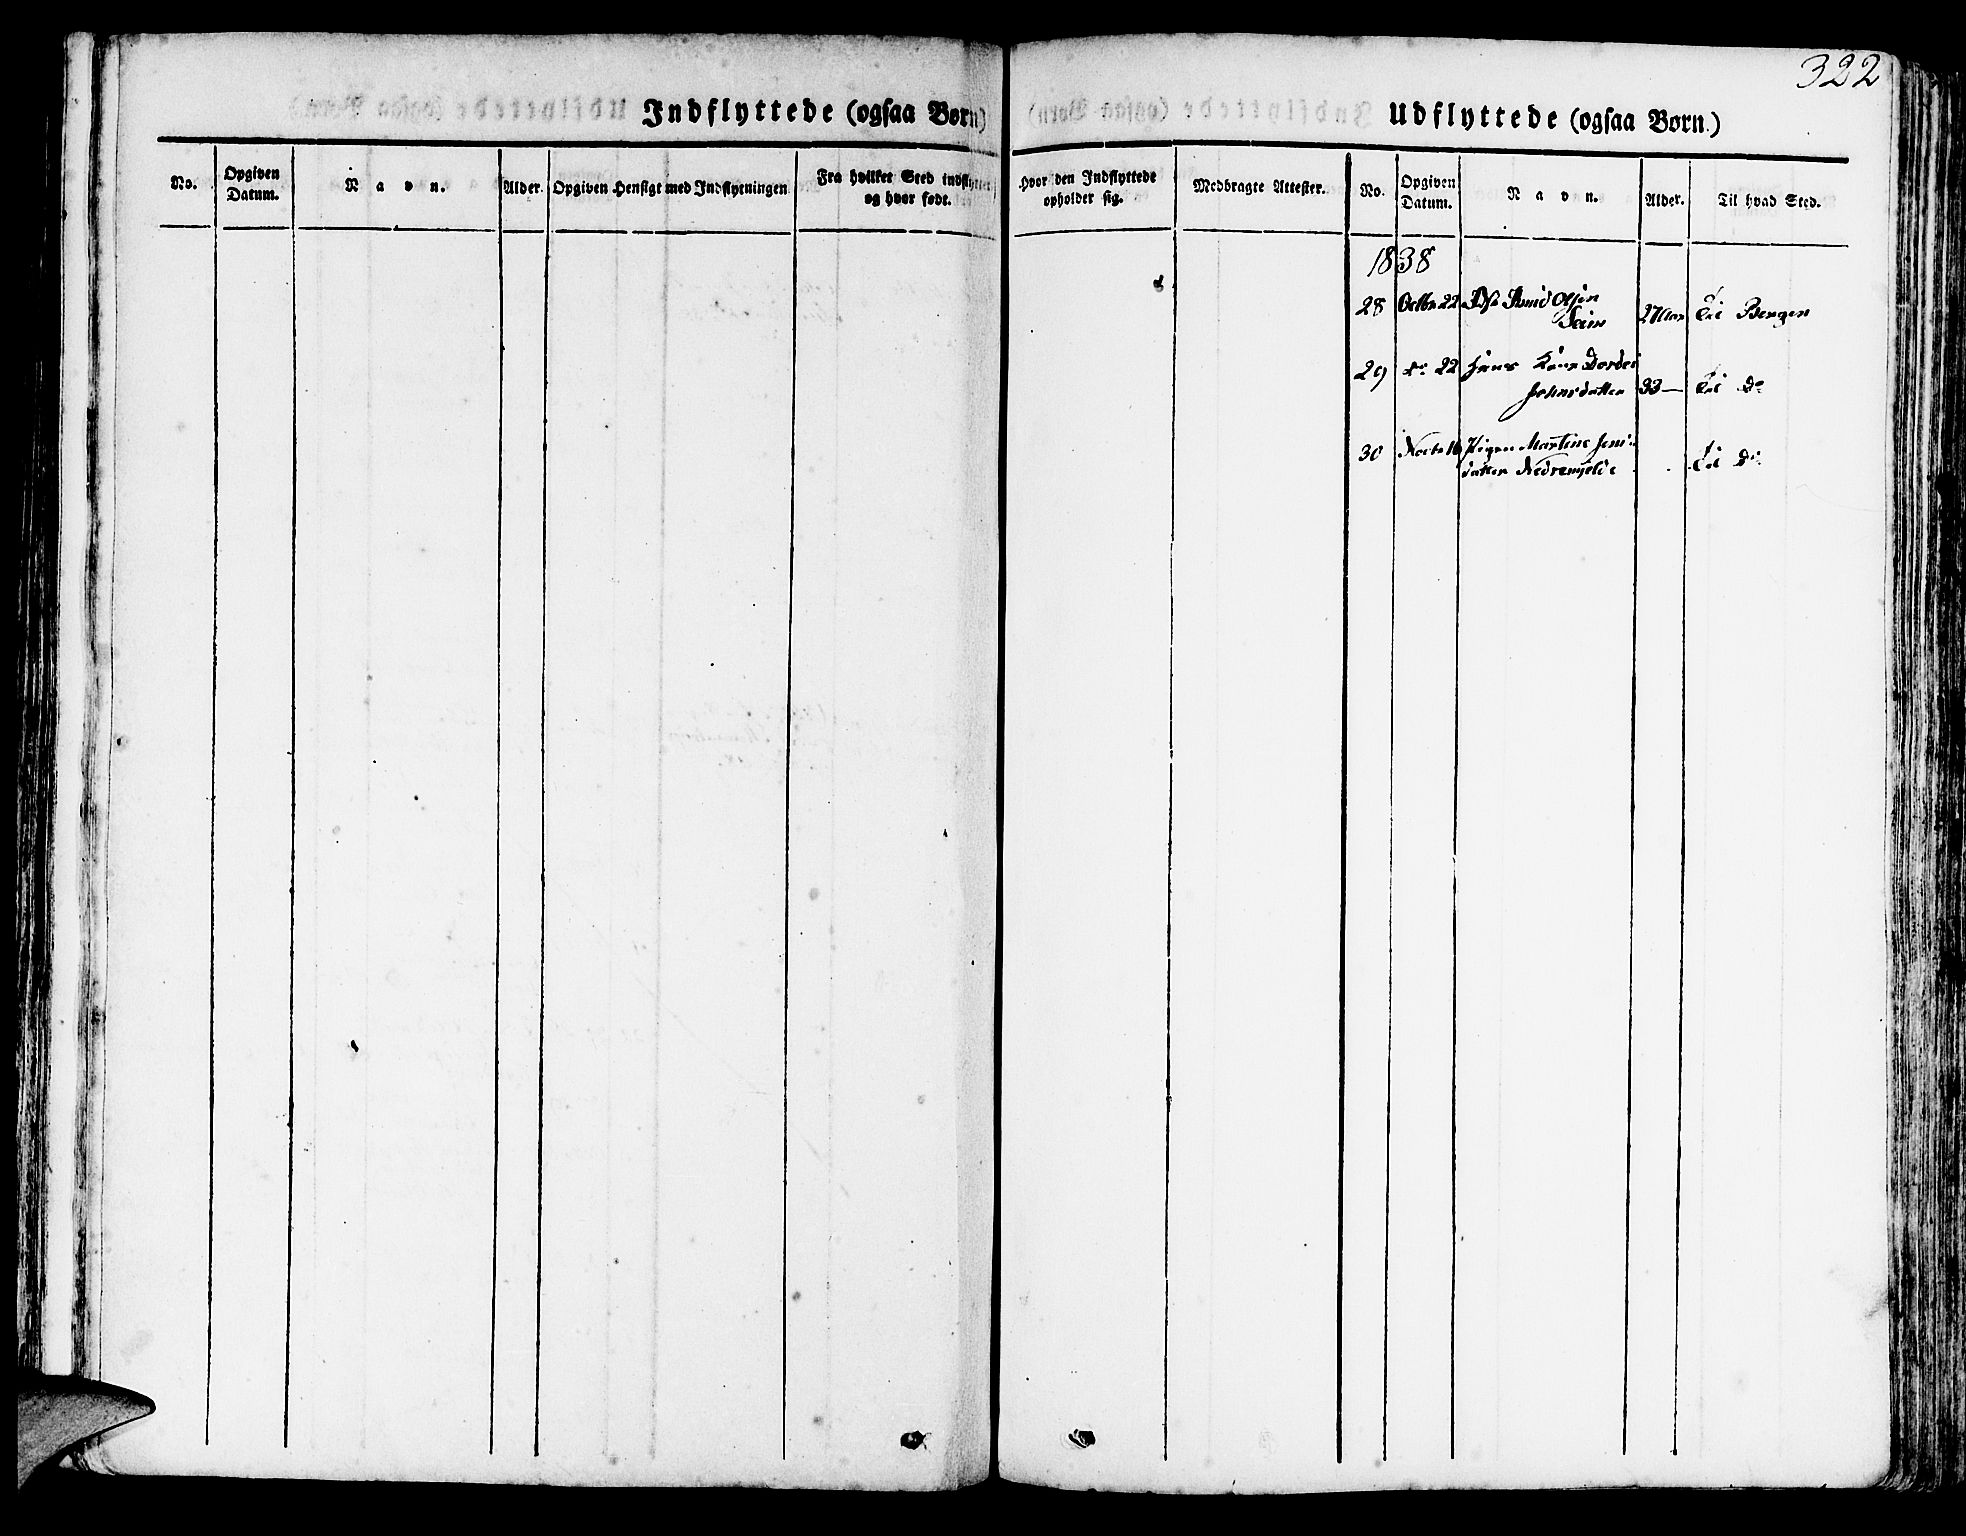 322
Indflyttede (ogsaa Børn)
No.
Opgiven
Datum.
Navn.
Alder.
Opgiven Hensigt med Indflytningen
Fra hvilket Sted indflyttet
og hvor født.
Udflyttede (ogsaa Børn.)
Hvor den Indflyttede
opholder sig.
Medbragte Attester.
No.
Opgiven
Datum.
Navn.
Alder.
Til hvad Sted.
1838
28 Octbr 22 Olsen
Seim 27 Aar Til Bergen
29 do 22 Hans Kone Dordei
Johnsdatter 33 — Til Do
30 16 Pigen Martine Jens
datter Til Do